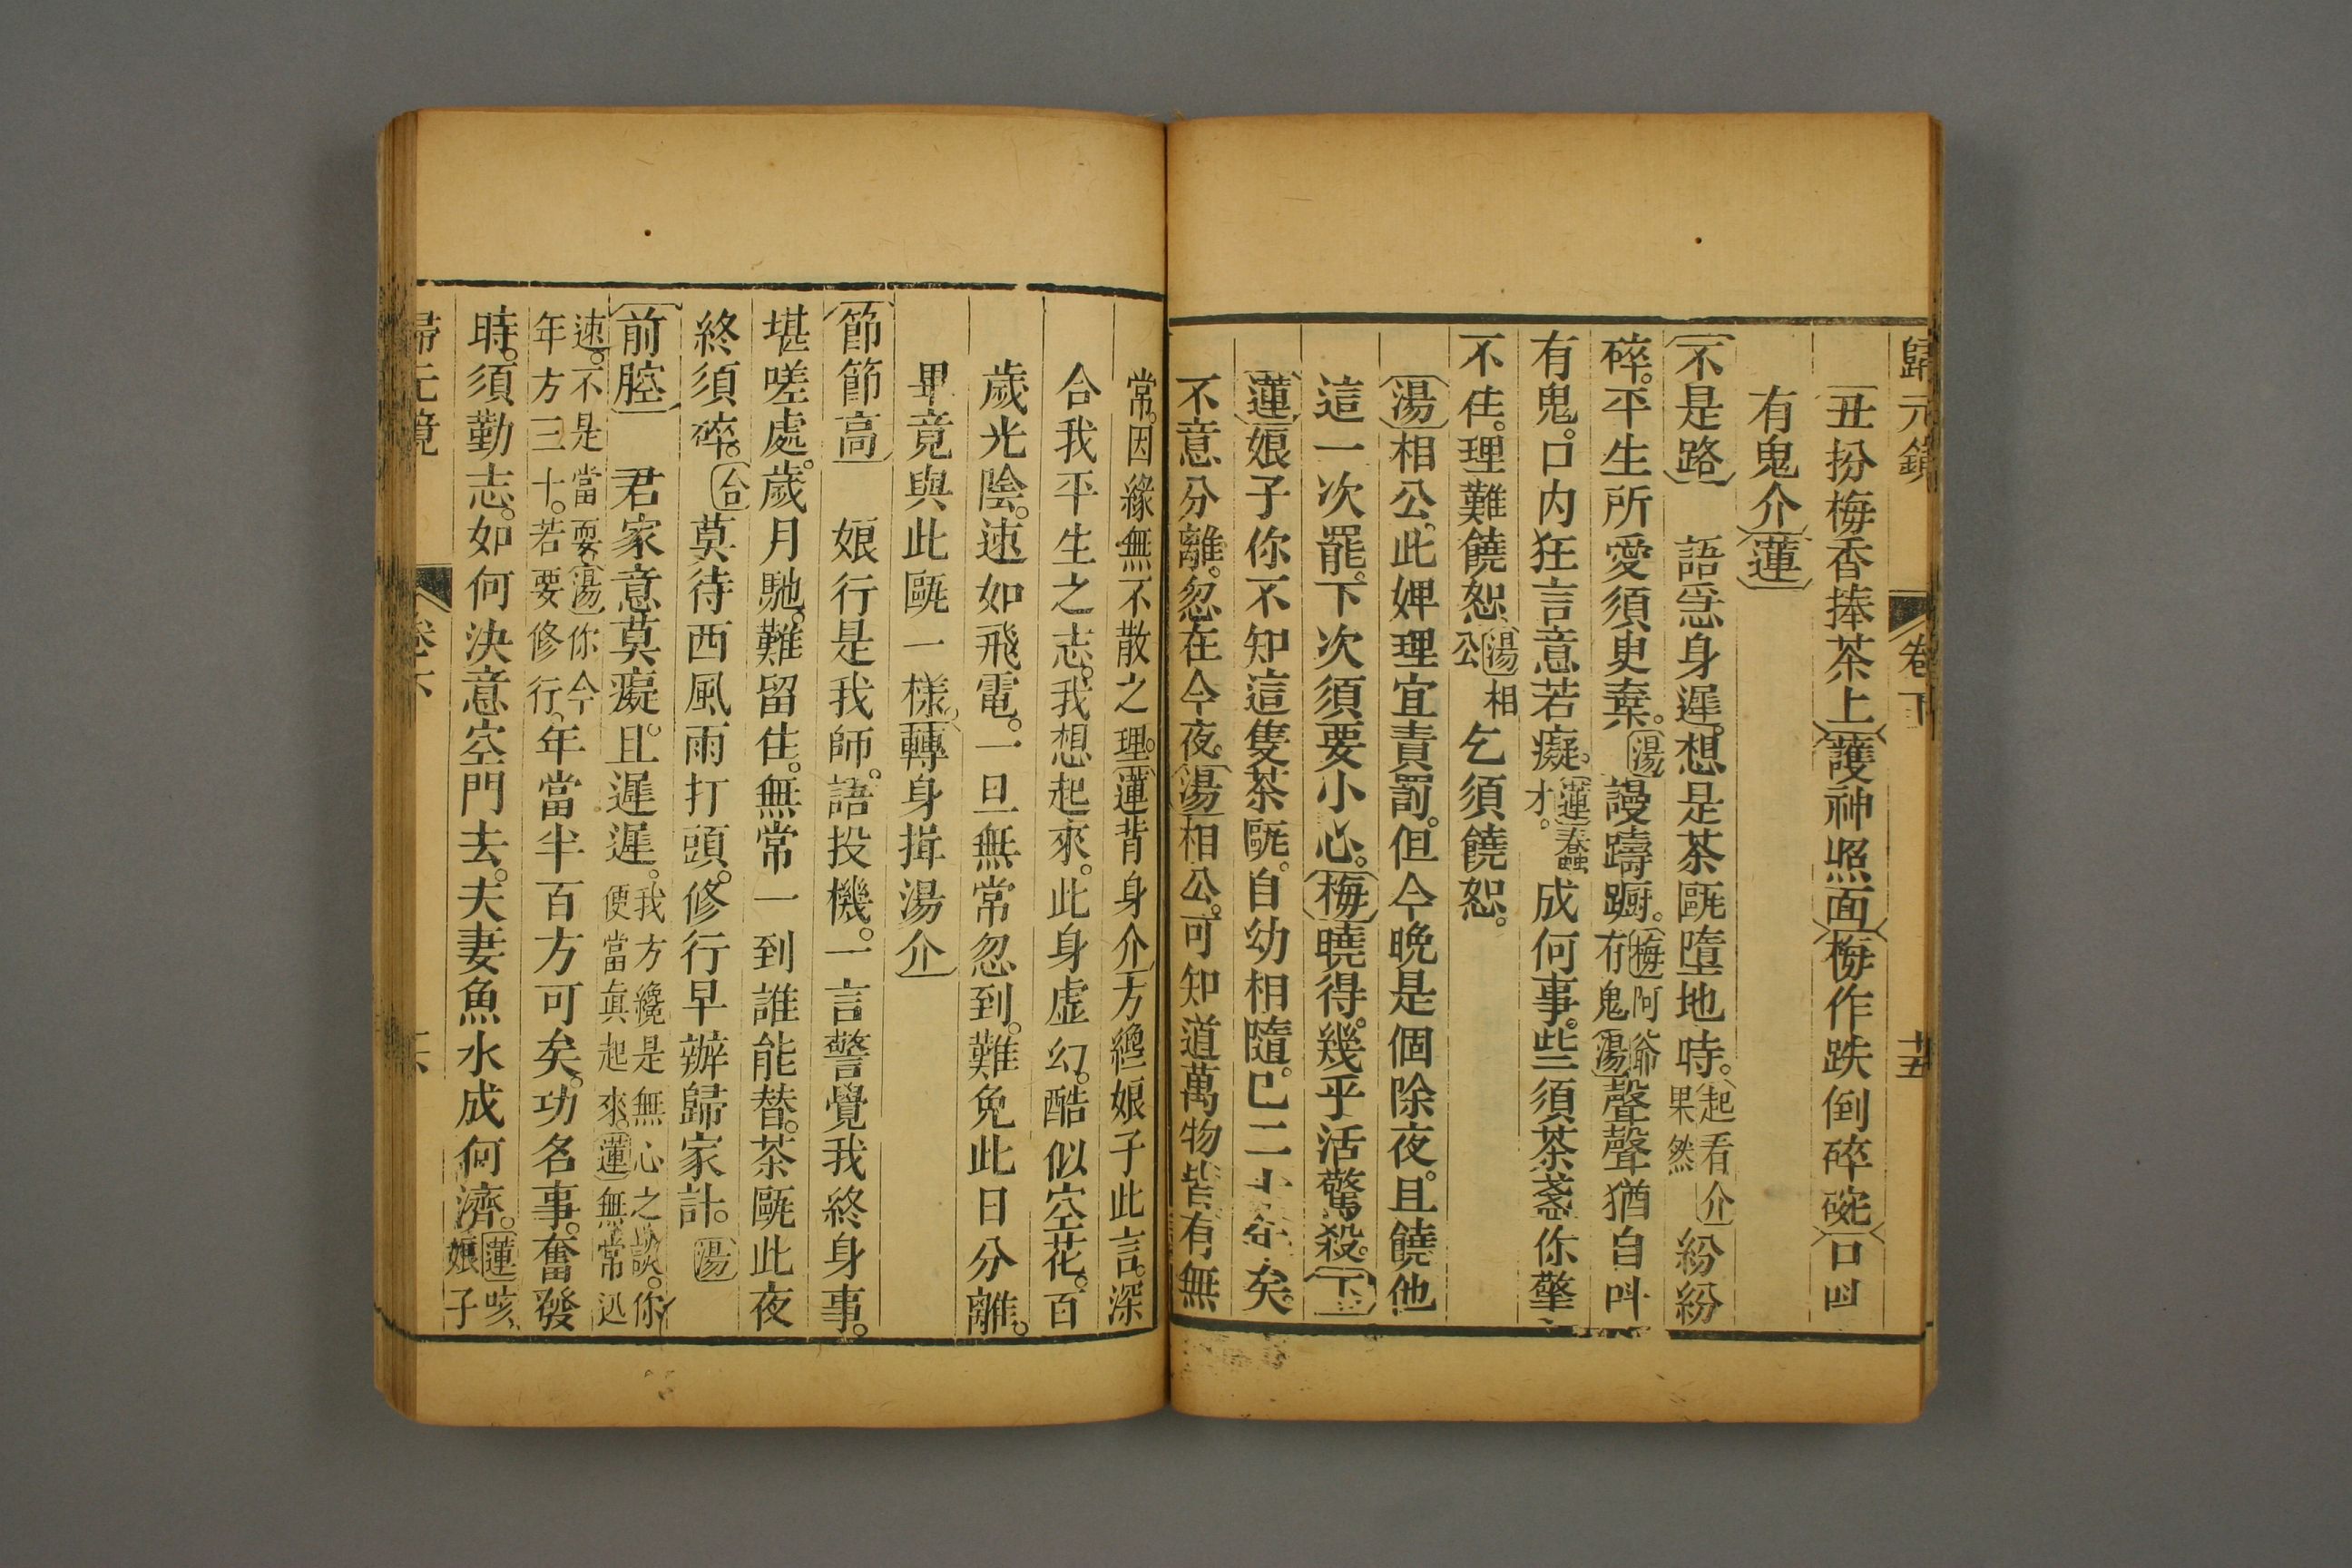 歸元鏡 卷下 十五
丑扮梅香捧茶上護神照面梅作跌倒碎碗口叫
有鬼介蓮
不是路 語急身遲。想是茶甌墮地時。起看介果然紛紛
碎。平生所愛須臾棄。湯謾躊躕。梅阿爺有鬼湯聲聲猶自叫
有鬼。口內狂言意若癡。蓮蠢才。成何事。些須茶盞你擎
不住。理難饒恕。湯相公乞須饒恕。
湯相公。此婢理宜責罰。但今晚是個除夜。且饒他
這一次罷。下次須要小心。梅曉得。幾乎活驚殺。下
蓮娘子你不知這隻茶甌。自幼相隨。已二十年矣。
不意分離。忽在今夜。湯相公。可知道萬物皆有無
常。因緣無不散之理。蓮背身介方纔娘子此言。深
合我平生之志。我想起來。此身虛幻。酷似空花。百
歲光陰。速如飛電。一旦無常忽到。難免此日分離。
畢竟與此甌一樣。轉身揖湯介
節節高 娘行是我師。語投機。一言警覺我終身事。
堪嗟處。歲月馳。難留住。無常一到誰能替。茶甌此夜
終須碎。合莫待西風雨打頭。修行早辦歸家計。湯
前腔 君家意莫癡。且遲遲。我方纔是無心之談。你便當真起來。蓮無常迅
速。不是當耍。湯你今年方三十。若要修行。年當半百方可矣。功名事。奮發
時。須勤志。如何決意空門去。夫妻魚水成何濟。蓮咳，娘子